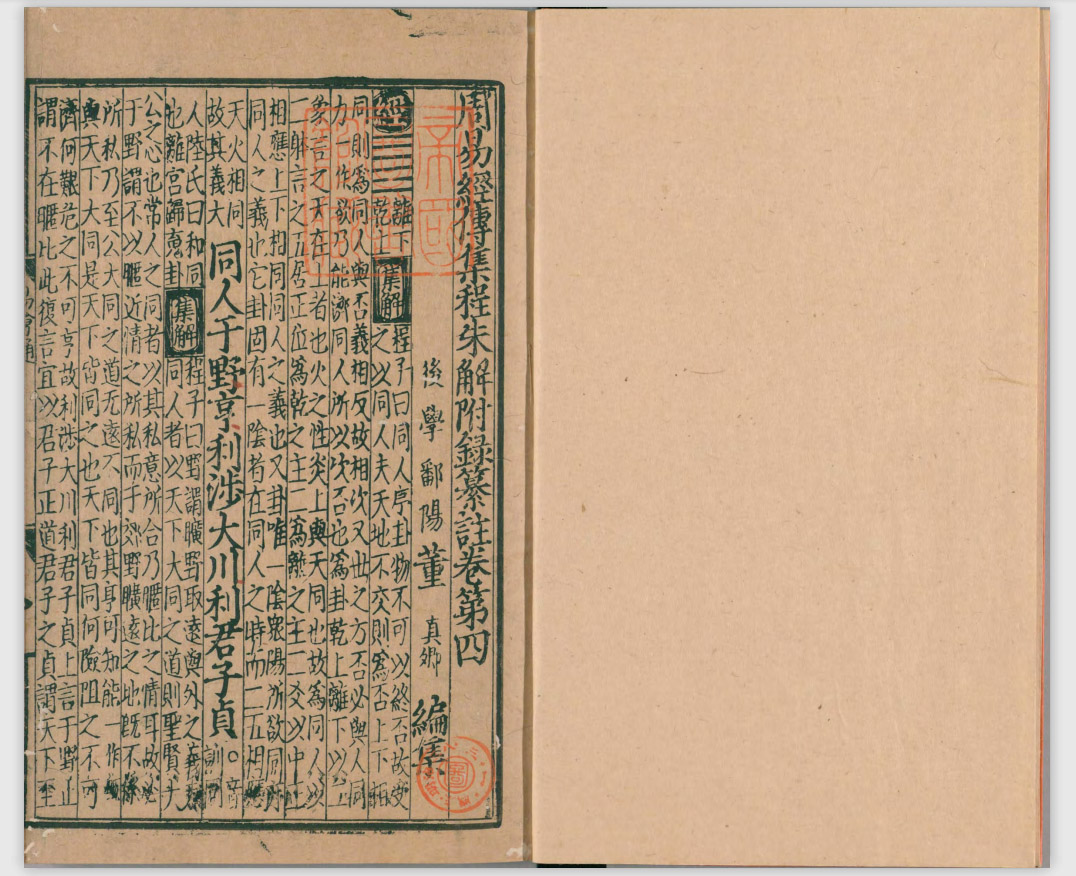 周易經傳集程朱解附錄纂註卷第四
後學鄱陽董真卿編集
經䷌離下乾上 集解 程子曰同人序卦物不可以終否故受
之以同人夫天地不交則為否上下相
同則為同人與否義相反故相次又世之方否必與人同
力一作欲乃能濟同人所以次否也為卦乾上離下以二
象言之天在上者也火之性炎上與天同也故為同人以
二體言之五居正位為乾之主二為離之主二爻以中正
相應上下相同同人之義也又卦唯一陰眾陽所欲同亦
同人之義也它卦固有一陰者在同人之時而二五相應
天火相同
故其義大
同人于野亨利涉大川利君子貞
○音
訓同
人陸氏曰和同
也離宮歸䰟卦
集解
程子曰野謂曠野取遠與外之義夫
同人者以天下大同之道則聖賢大
公之心也常人之同者以其私意所合乃暱比之情耳故必
于野謂不以暱近情之所私而于郊野曠遠之地既不繫
所私乃至公大同之道无遠不同也其亨可知能一作
與天下大同是天下皆同之也天下皆同何險阻之不可
濟何艱危之不可亨故利涉大川利君子貞上言于野止
謂不在暱比此復言宜以君子正道君子之貞謂天下至